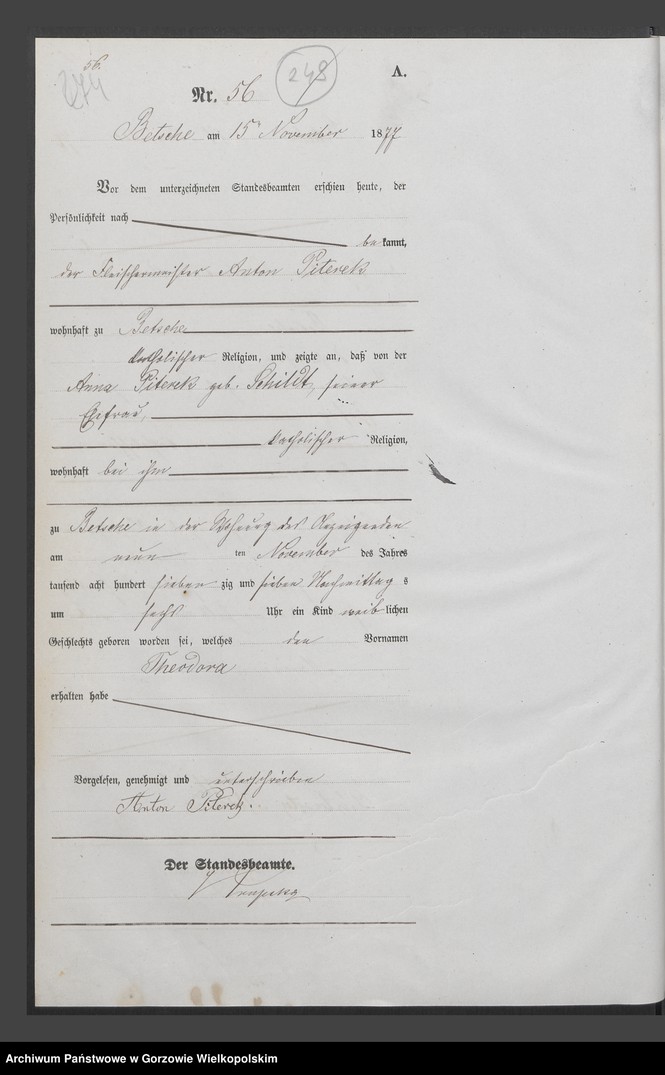 56.
244
248
A.
Nr. 56
Betsche am 15ᵗ November 1877
Vor dem unterzeichneten Standesbeamten erschien heute, der
Persönlichkeit nach
bekannt,
der Fleischermeister Anton Piterek
wohnhaft zu Betsche
katholischer Religion, und zeigte an, daß von der
Anna Piterek geb. Schildt, seiner
Ehefrau,
katholischer Religion,
wohnhaft bei ihm
zu Betsche in der Wohnung des Anzeigenden
am neun ten November des Jahres
tausend acht hundert siebenzig und sieben Nachmittags
um sechs Uhr ein Kind weiblichen
Geschlechts geboren worden sei, welches den Vornamen
Theodora
erhalten habe
Vorgelesen, genehmigt und unterschrieben
Anton Piterek.
Der Standesbeamte.
Archiwum Państwowe w Gorzowie Wielkopolskim